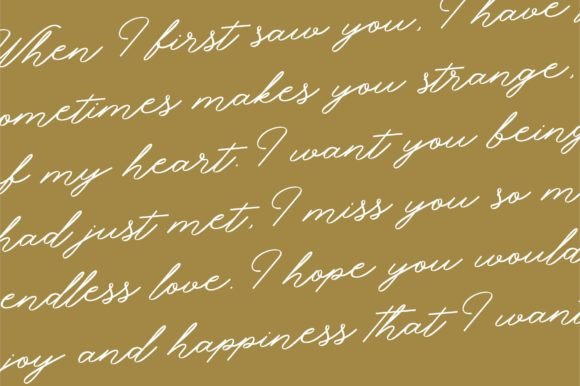 When I first saw you, I have
ometimes makes you strange,
f my heart. I want you being
had just met, I miss you so m
endless love. I hope you would
joy and happiness that I want